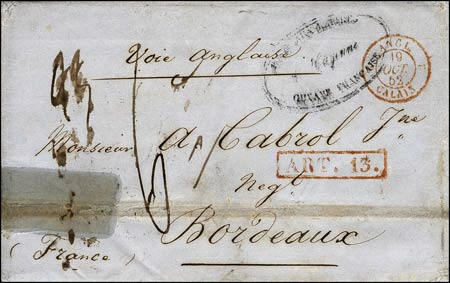 Voie Anglaise
Cayenne
GUYANE FRANÇAISE
ANGL.
19
OCT.
52
CALAIS
Monsieur A Cabrol Jne
ART. 13.
Negt
Bordeaux
(France)